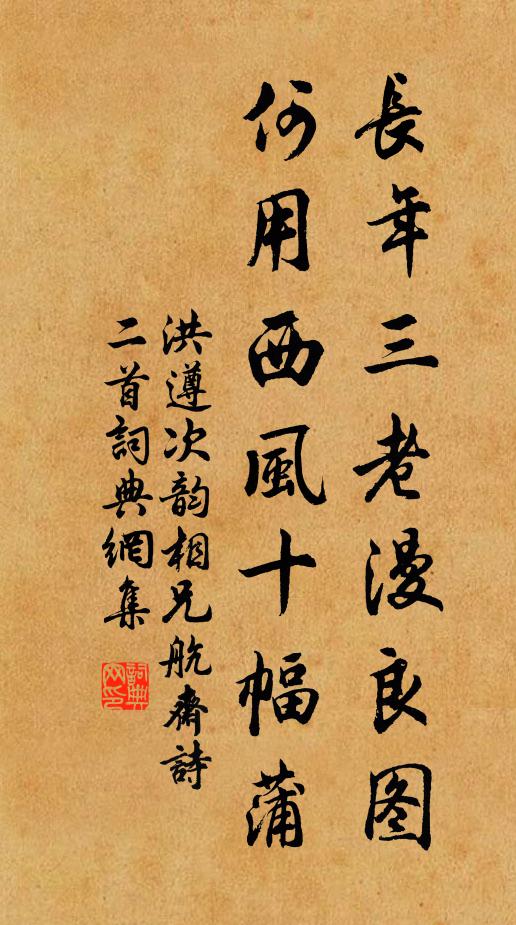 長年三老漫良图
何用西風十幅蒲
洪遵次韵相兄航齋詩
二首詞典網集
詞典网印